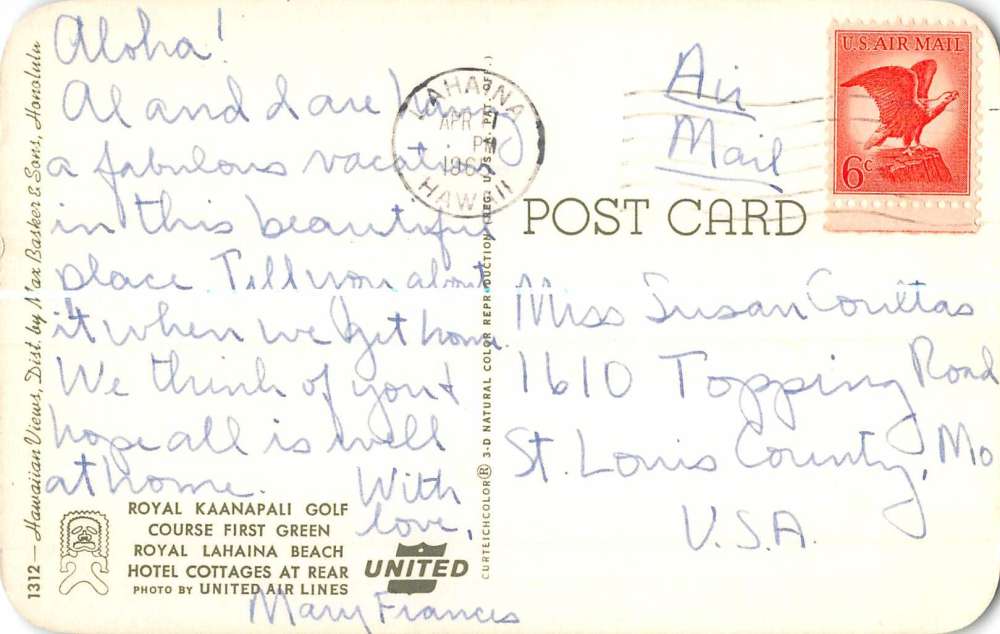 Aloha!
Al and I are having
a fabulous vacation
in this beautiful
place. Tell you about
it when we get home.
We think of you &
hope all is well
at home. With
love,
Mary Frances
ROYAL KAANAPALI GOLF
COURSE FIRST GREEN
ROYAL LAHAINA BEACH
HOTEL COTTAGES AT REAR
PHOTO BY UNITED AIR LINES
UNITED
1312 — Hawaiian Views, Dist. by Max Basker & Sons, Honolulu
CURTEICHCOLOR® 3-D NATURAL COLOR REPRODUCTION (REG. U.S.A. PAT.
LAHAINA
APR
PM
HAWAII
Air
Mail
U.S. AIR MAIL
6c
POST CARD
Miss Susan Coultas
1610 Topping Road
St. Louis County, Mo
U.S.A.